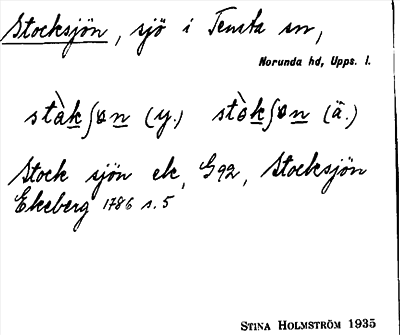 Stocksjön, sjö i Tensta sn,
Norunda hd, Upps. l.
stàkʃɵn (y.) stòkʃɵn (ä.)
Stock sjön ek, G92, Stocksjön
Ekeberg 1786 s. 5
STINA HOLMSTRÖM 1935